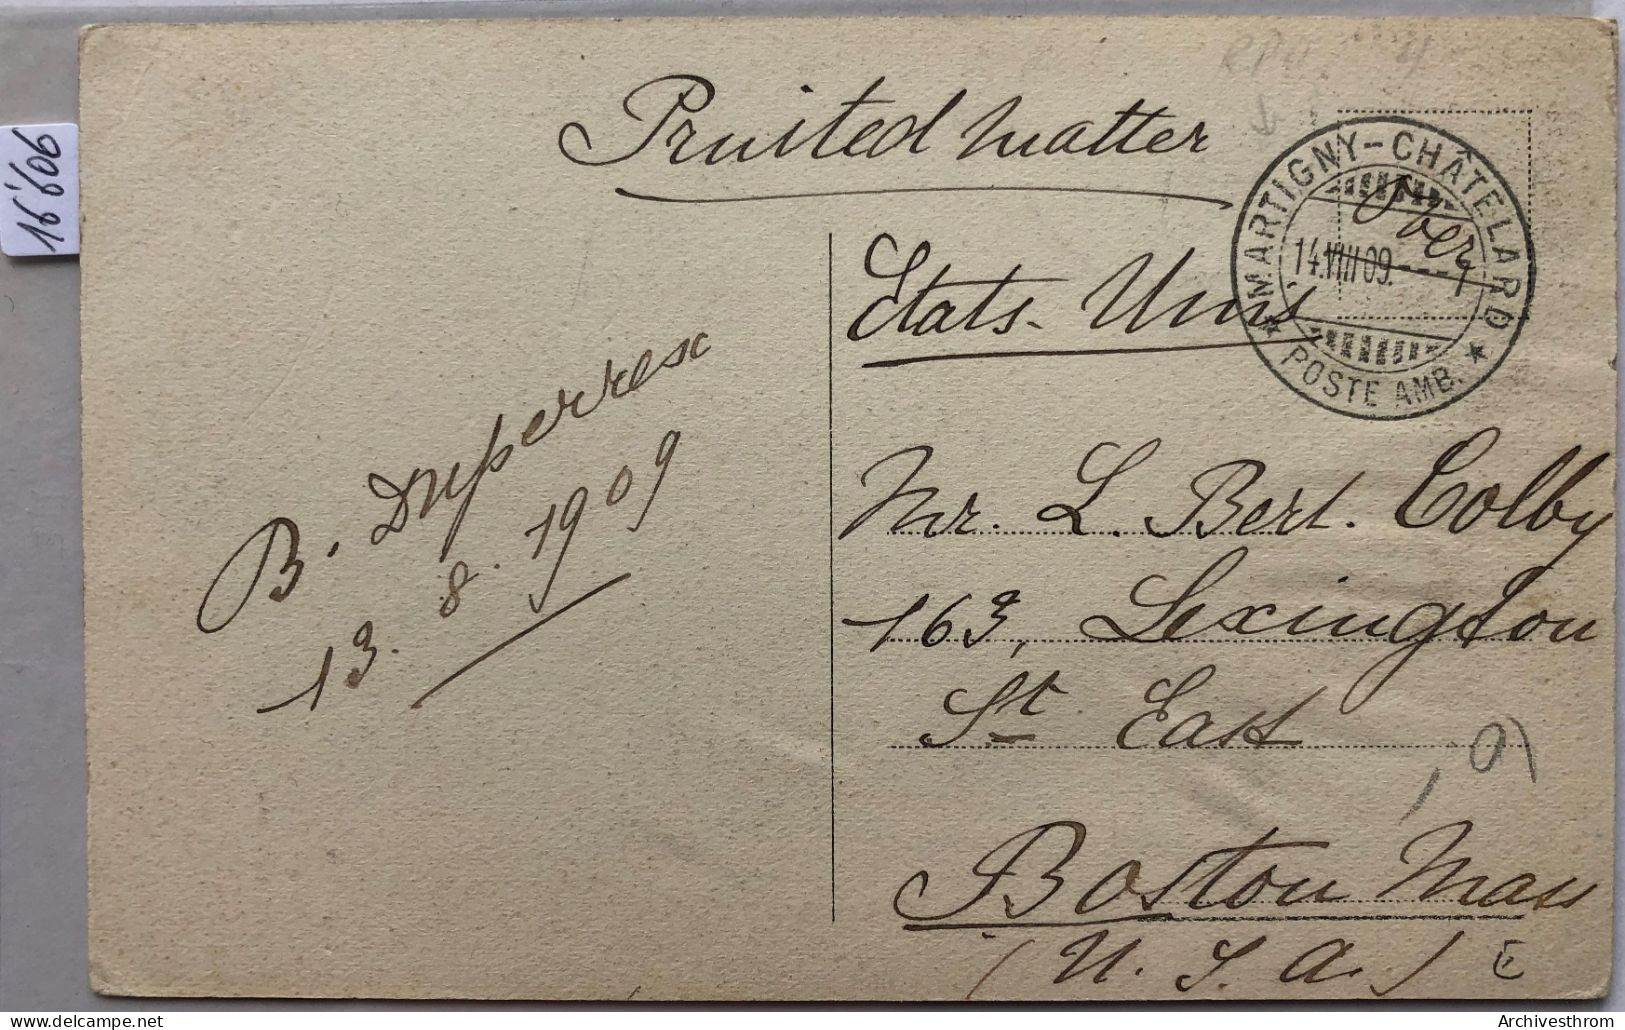 16'606
Printed matter
MARTIGNY-CHÂTELARD
Over
14.VIII 09.---1
POSTE AMB.
Etats-Unis
Mr. L. Bert. Colby
163, Lexington
St East
Boston Mass
(U. S. A.)
B. Duperrex
13. 8. 1909
delcampe.net
Archivesthrom